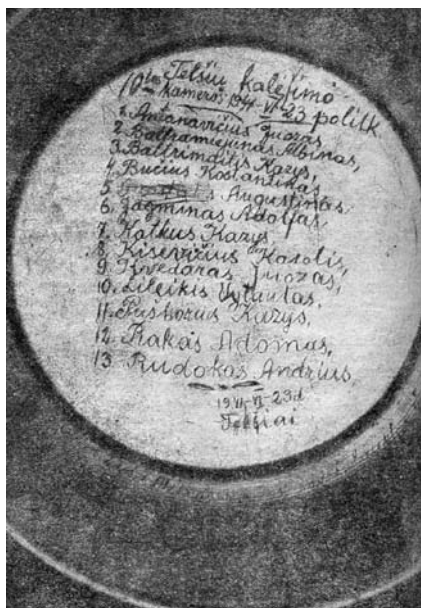 Telšių kalėjimo
10tos kameros 1941-VI-23 politk.
1. Antanavičius Juozas
2. Baltramiejūnas Albinas,
3. Baltrimaitis Kazys,
4. Bučius Kostantinas
5. Augustinas
6. Jagminas Adolfas
7. Katkus Kazys
8. Kisevičius Karolis,
9. Kvedaras Juozas,
10. Lileikis Vytautas,
11. Puškorius Kazys,
12. Rakas Adomas,
13. Rudokas Andrius,
1941-VI-23d
Telšiai